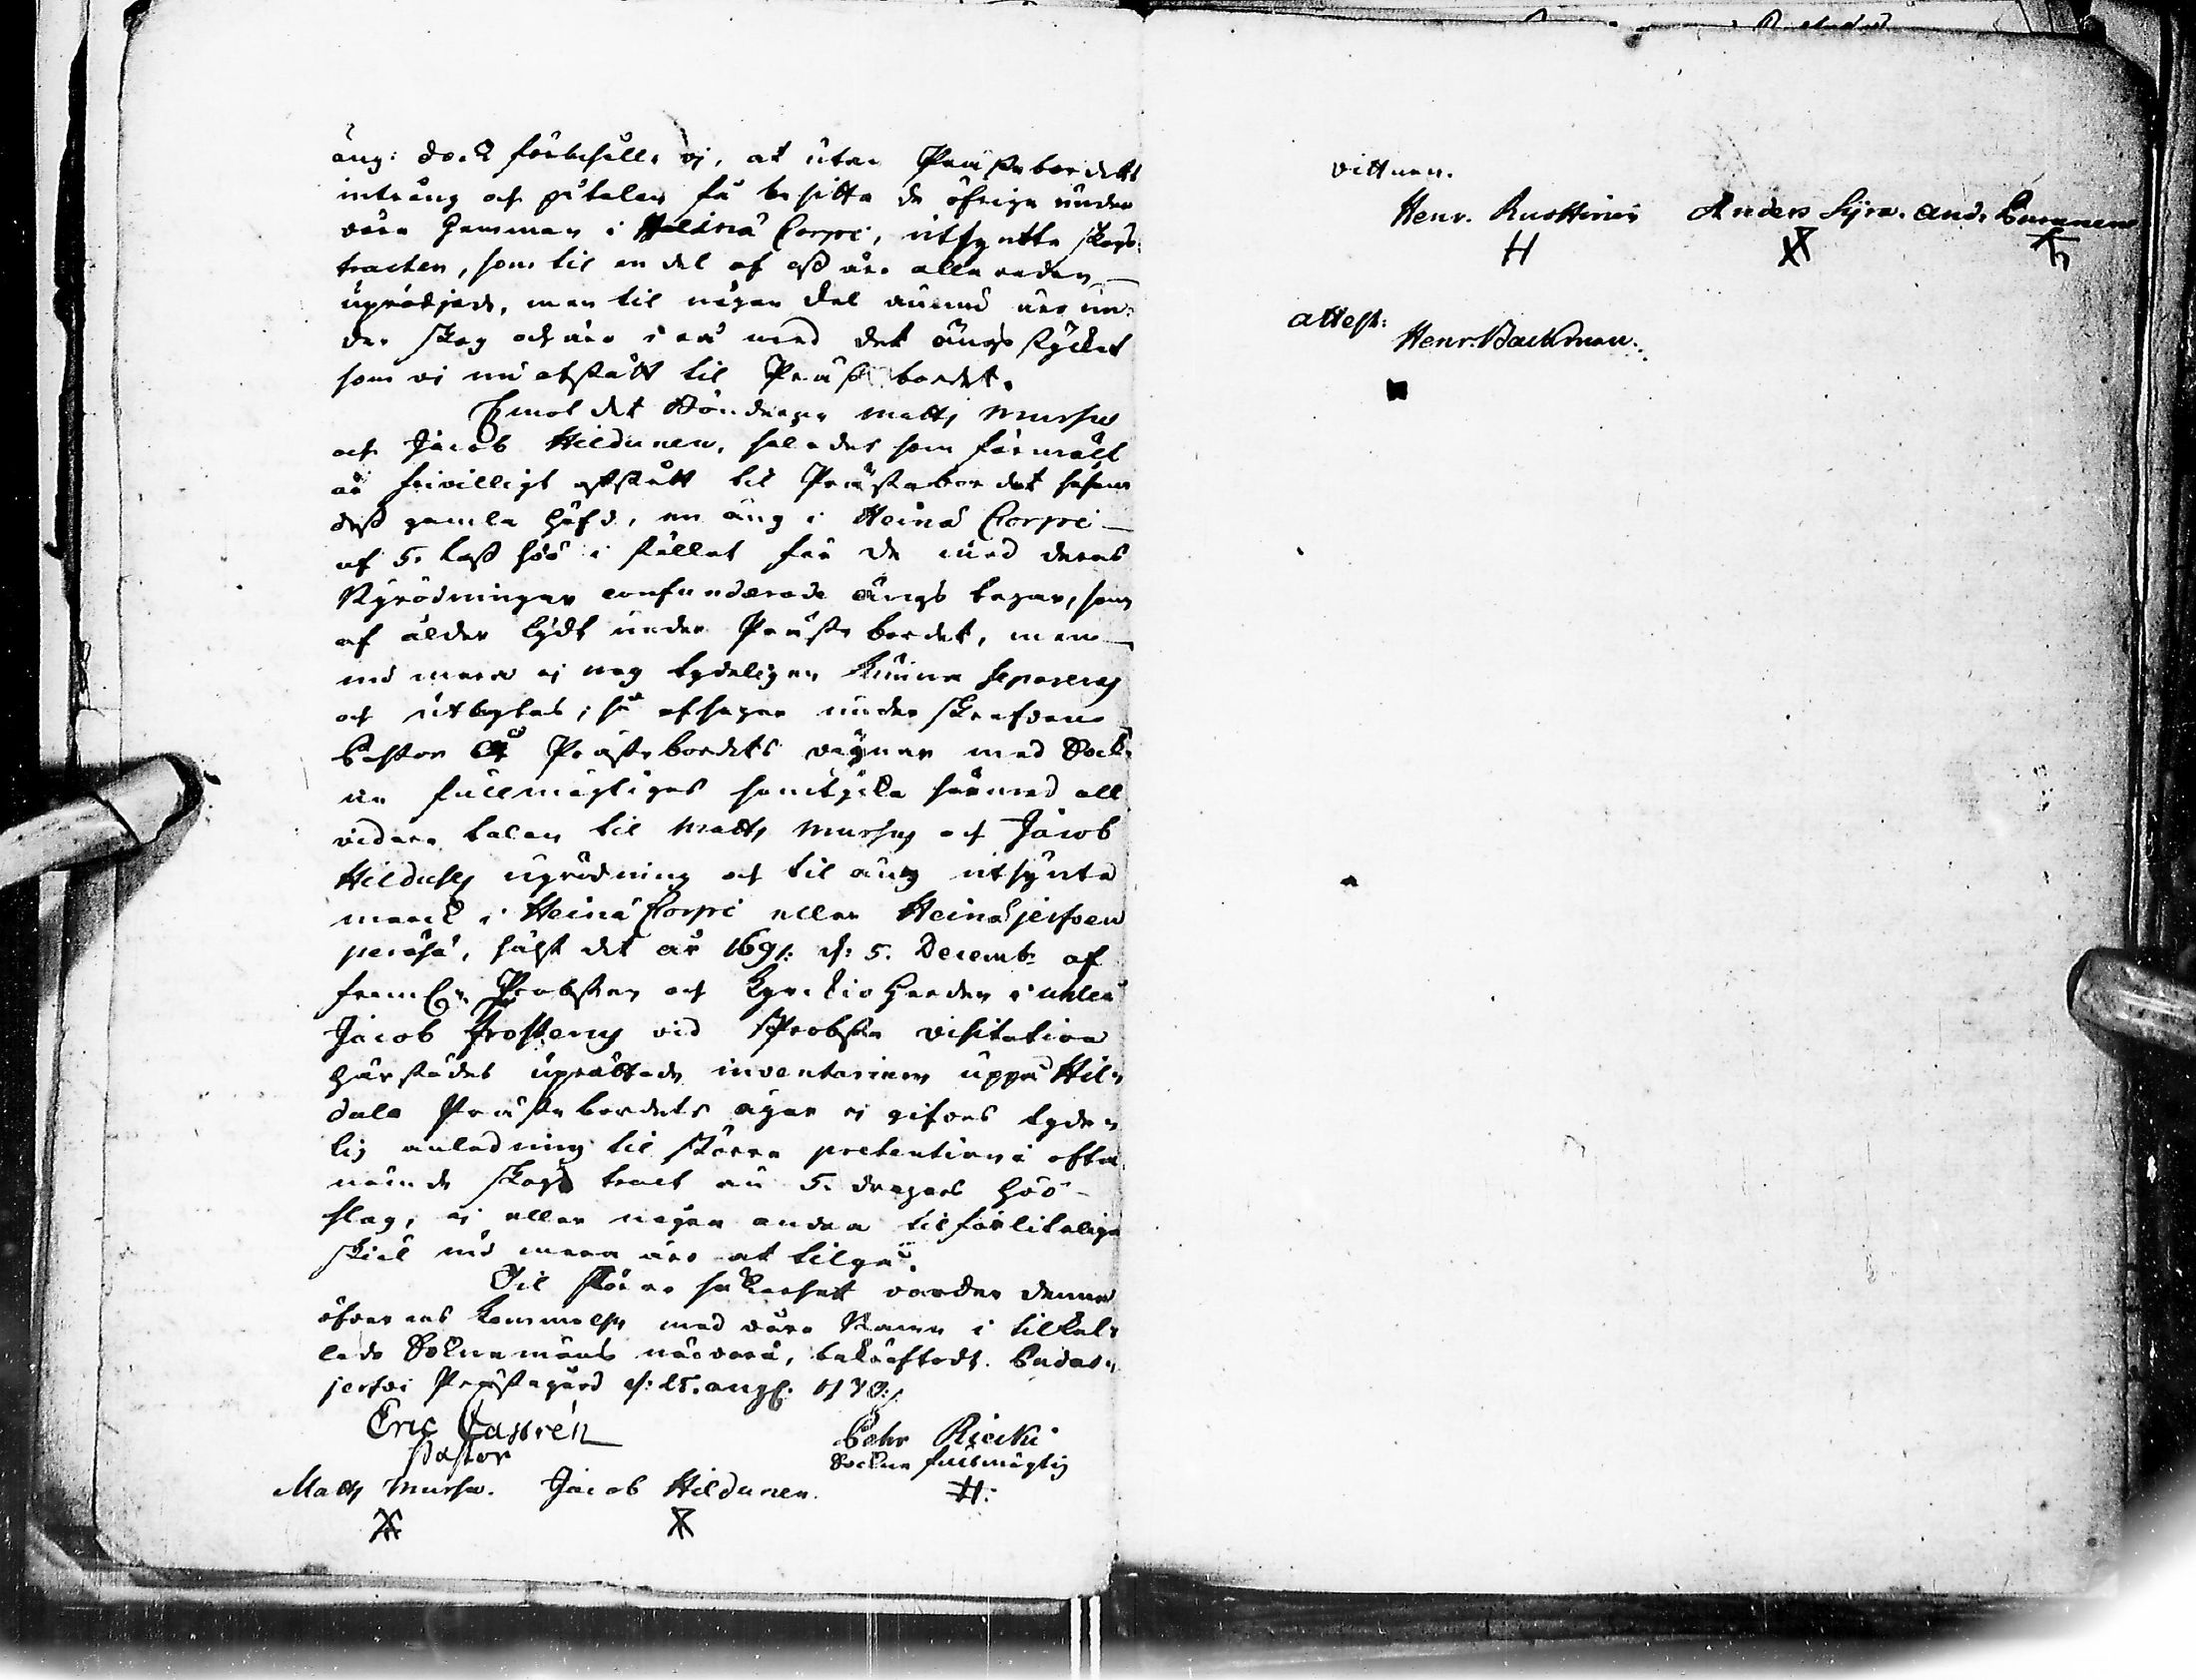 äng: dock förbehålle vj, at utan Prästebordets
intrång och påtalan få besitta de öfrige under
våra hemman i Heinä Corpi, utsynte skogs-
tracten, som til en del af oss äro allareden
uprödjade, men til någon del ännu äro un-
der skog och äro i rå med det ängs stycket
som vi nu afstått til Prästebordet.
Emot det Bönderne Matts Mursu
och Jacob Hildunen, saledes som förmält
är frivilligt afstått til Prästabordet såsom
dess gamla häfd, en äng i Heinä Corpi
af 5. lass höö i stället för de med deras
Nyrödningar confunderade ängs tegar, som
af ålder lydt under Prästebordet, men
nu mera ej nog tydeligen kunna separeras
och utbytas; så afsäger underskrefven
Pastor å Prästebordets vägnar med Sock-
ne fullmägtiges samtycke härmed all
vidare talan til Matts Mursus och Jacob
Hildusts uprödning och til äng utsynta
marck i Heinä Corpi eller Heinäjerfven
peräsä, hälst det år 1691: d: 5. Decemb: af
fram Probsten och Kyrckioherden i Uhleå
Jacob Frosterus vid Probste visitation
härstädes uprättade inventarium uppå Hil-
dala Prästebordets ägor ej gifves tyde-
lig anledning til större pretention i ofta
nämde skogs tract än 5. dragars höö-
slag, ej eller någre andra tilförliteliga
skiäl nu mera äro at tilgå.
Til större säkerhet varder denna
öfverenskommelse med våra Namn i tilkal-
lade Socknemäns närvaro, bekräftadt. Pudas-
jerfvi Prästegård d: 25. aug.
Eric Castrén
Pastor
Pehr Riecki
Sockne fullmägtig
Matts Mursu. Jacob Hildunen.
vittnen.
Henr. Ruottinen Anders Sÿra. And.
attest:
Henr. Backman.